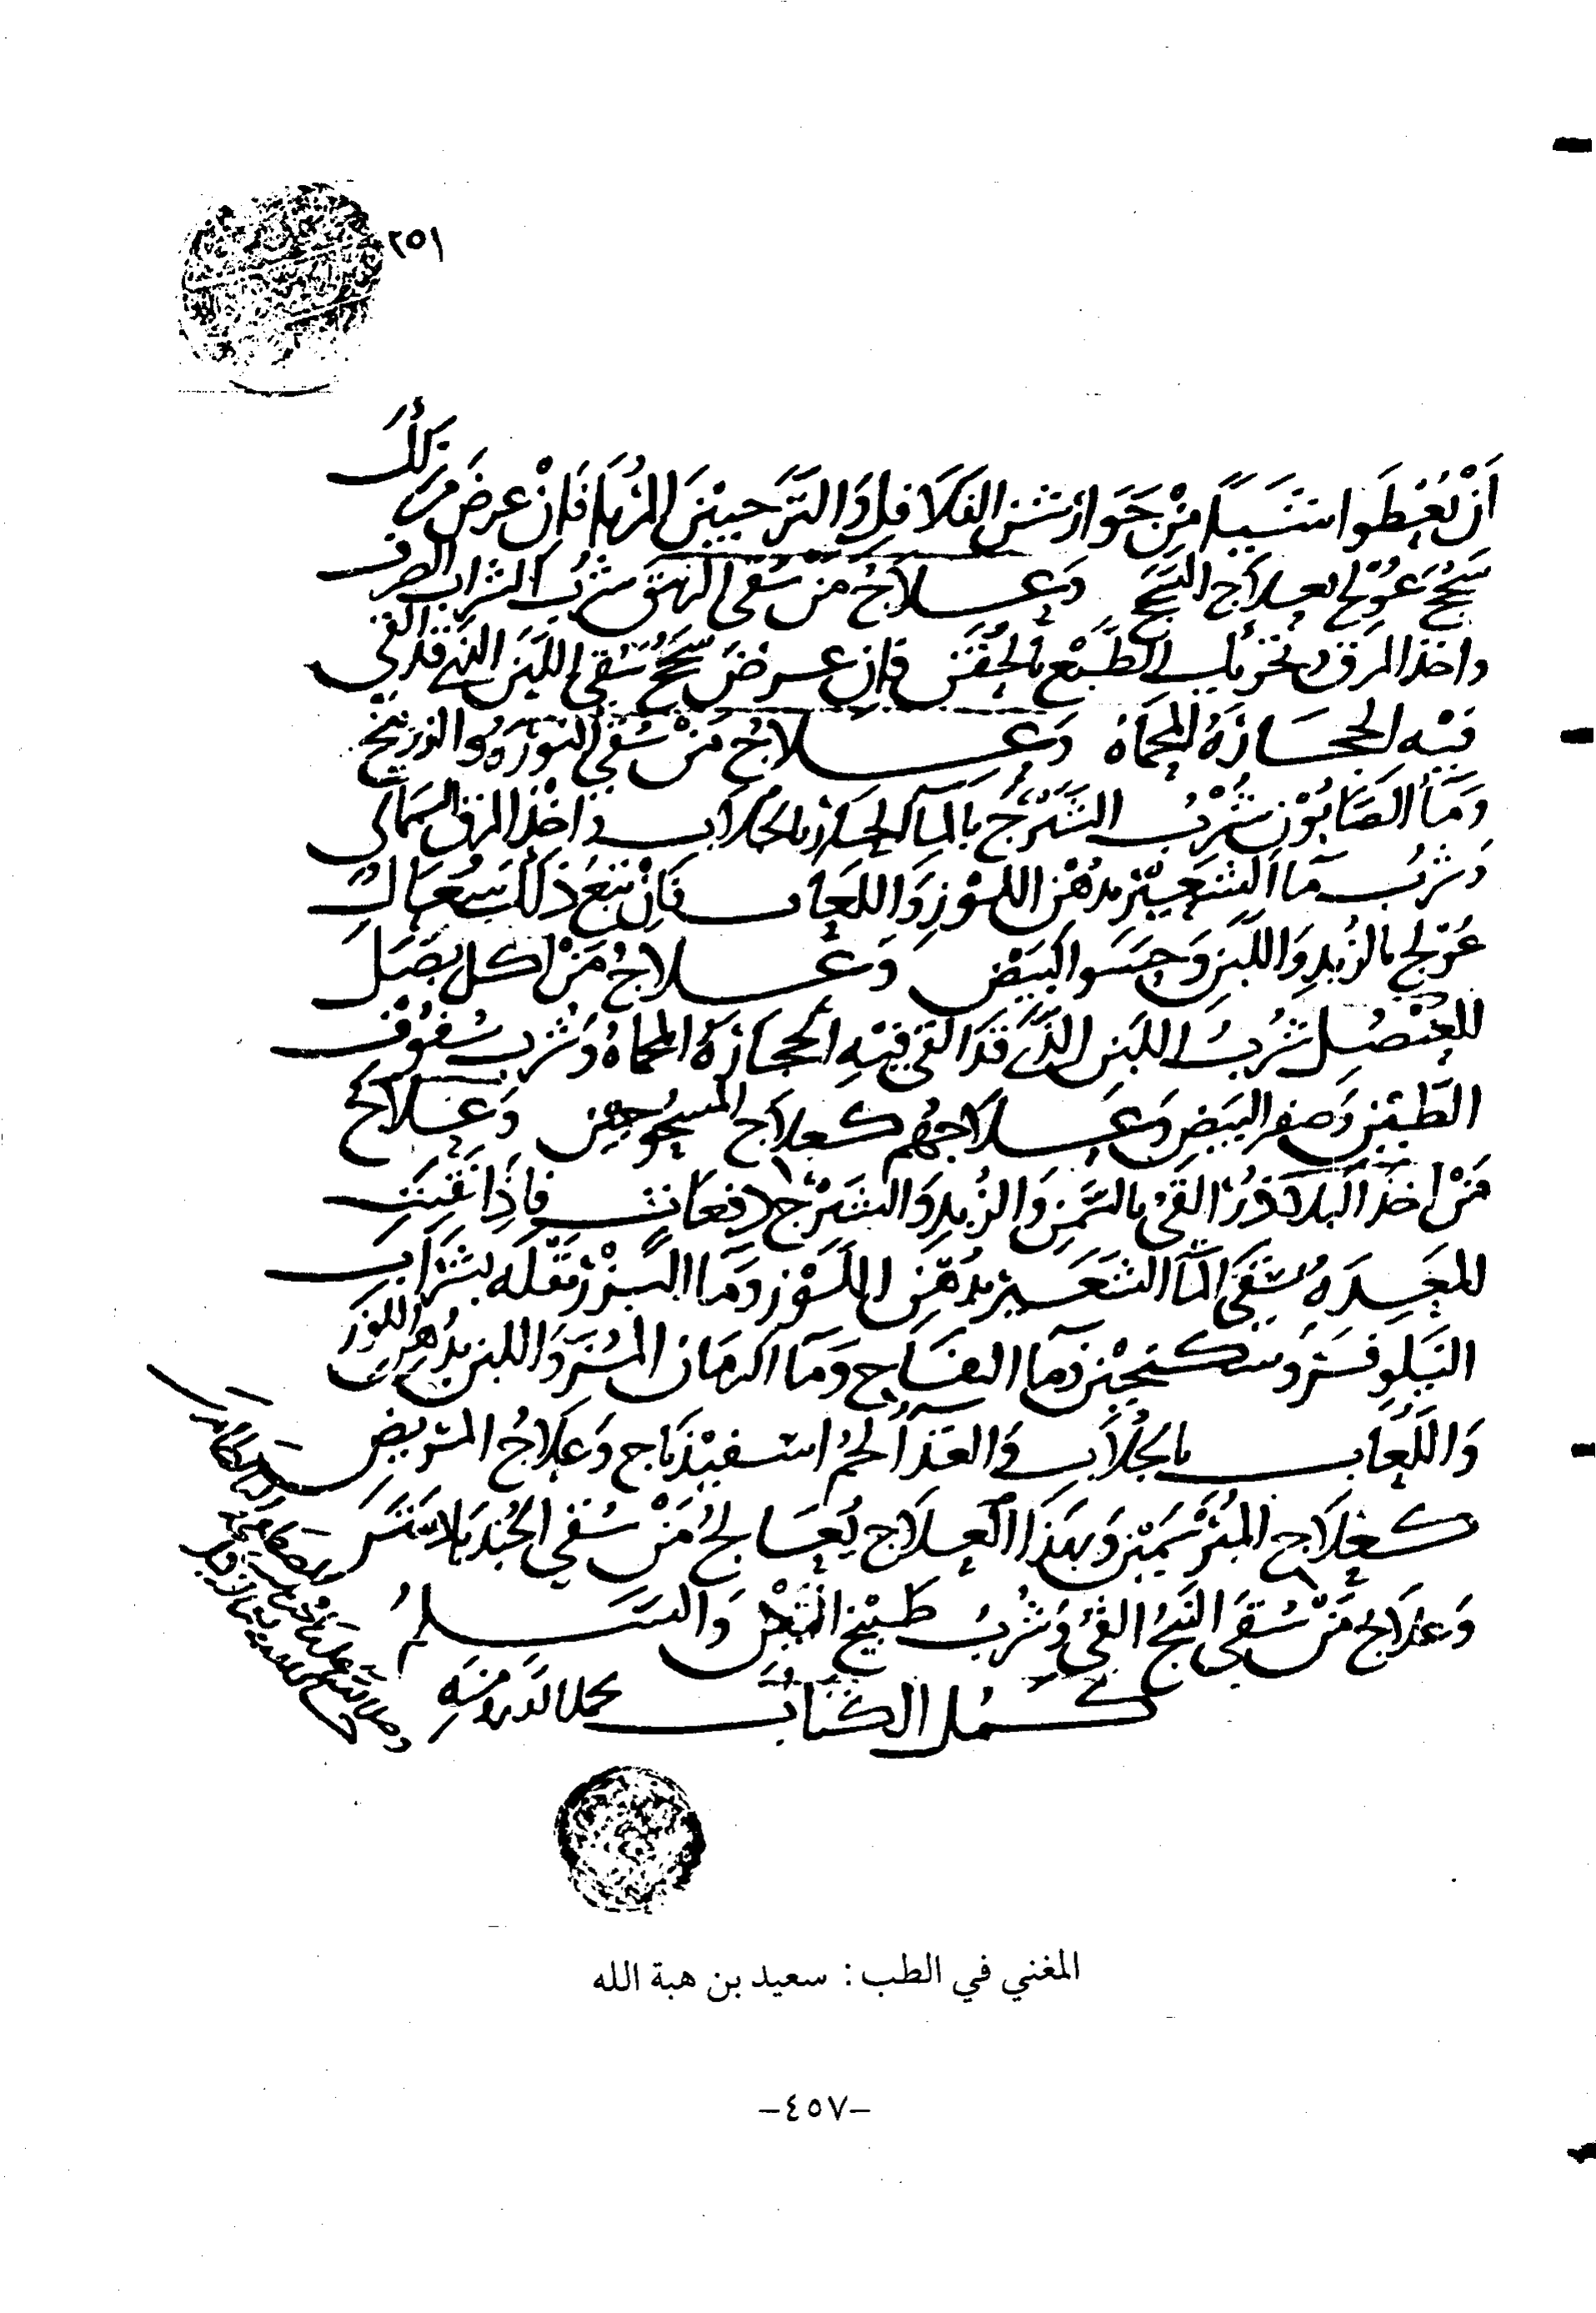 ٢٥١
ان يعطوا شيئا من جوارشن الفلافل والترنجبين المربا فان عرض من ذلك
سحج عولج بعلاج السحج وعلاج من سقى البهق شرب الشراب الصرف
واخذ المرق وتحريك الطبع بالحقن فان عرض سحج سقى اللبن الذي قد القي
فيه الحجارة المحماة وعلاج من سقي النورة والزرنيخ
وما الصابون شرب الشيرج بالما الحار والجلاب واخذ المرق
وشرب ما الشعير بدهن اللوز واللعاب فان تبع ذلك اسهال
عولج بالزبد واللبن وحسو البيض وعلاج من اكل بصل
العنصل شرب اللبن الذي قد القي فيه الحجارة المحماة وشرب سفوف
الطين وصفر البيض وعلاجهم كعلاج المسحوجين وعلاج
من اخذ البلاذر القي بالسمن والزبد والشيرج دفعات فاذا نقيت
المعده سقي ما الشعير بدهن اللوز وما البزر بقله بشراب
النيلوفر وسكنجبين وما التفاح وما الرمان المز واللبن بدهن اللوز
واللعاب بالجلاب والغذا لحم اسفيذباج وعلاج المتربض
كعلاج المبرسمين وبهذا العلاج يعالج من سقي الجندبادستر
وعلاج من سقي البنج القي وشرب طبيخ التين والسلم
كمل الكتاب بحمد الله ومنه
المغني في الطب : سعيد بن هبة الله
-٤٥٧-